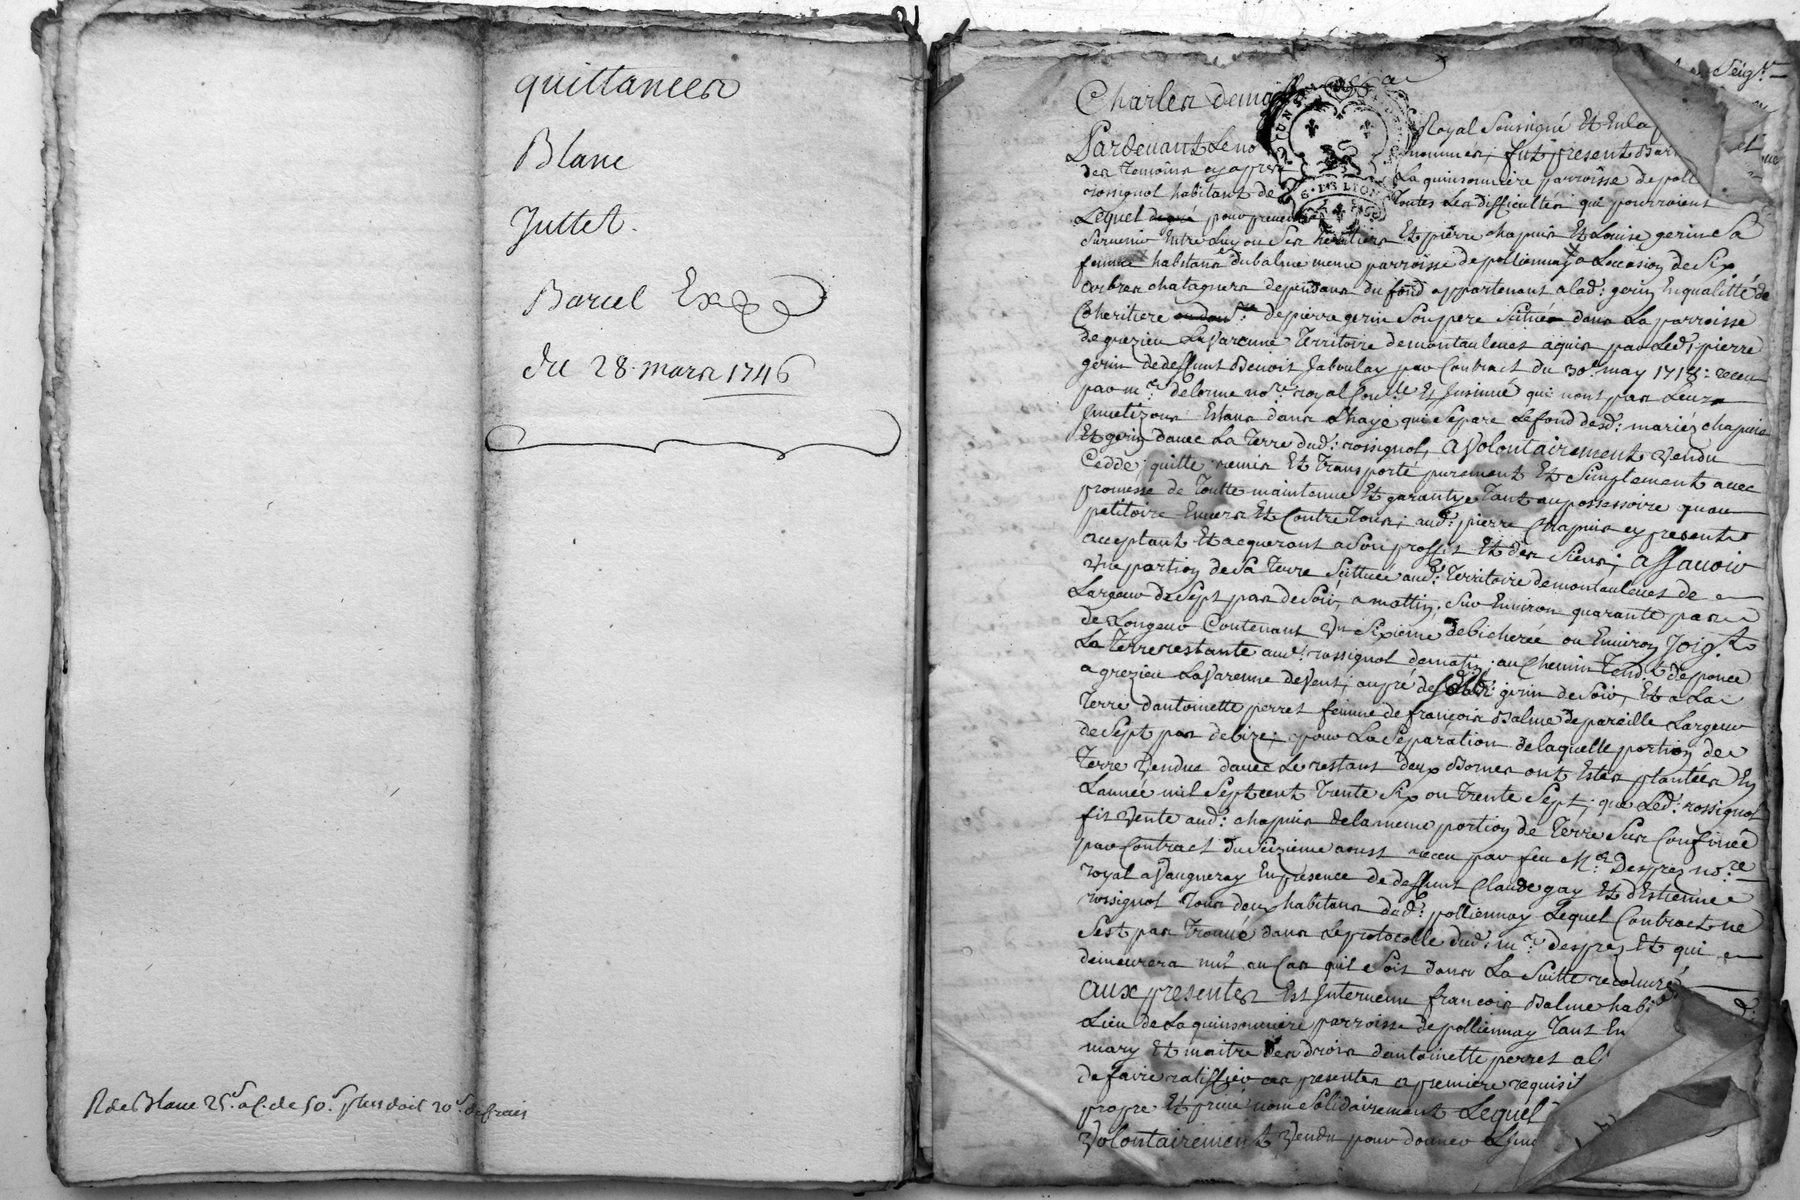 quittances
Blanc
Juttet.
Barcel Exp
du 28. mars 1746
R de Blanc 25 s a C. de 50 s plus doit 20 s de frais
Charles de
Seigr
Pardevant Le no Royal Soussigné Et En la p
des temoins cy apres nommés, fut present Bar
rossignol habitant de La quinsonniere parroisse de poll
Lequel pour prevenir Toutes Les difficultés qui pourroient
Survenir Entre Luy ou Ses heritiers Et pierre chapuis Et Louise gerin Sa
femme habitans du balme meme parroisse de pollionnay a Loccasion de Six
arbres chatagners dependans du fond appartenant a lad: gerin En qualitté de
Coheritiere de pierre gerin Son pere Scitués dans La parroisse
de grezieu La Varenne Territoire de montauleues aquis par Led: pierre
gerin de deffunt Benoit Jaboulay par Contract du 30e may 1718: receu
par mr. delorme nore royal Conlle Et Insinué qui nont pas Leurs
Estans dans L'haye qui Separe Le fond desd: mariés chapuis
Et gerin davec La Terre dud: rossignol, a Volontairement vendu
Cedde quitte remis Et transporté purement Et Simplement avec
promesse de Toutte maintenue Et garantye Tant au possessoire quau
petitoire Envers Et Contre Tous; aud: pierre Chapuis cy present
acceptant Et acquerant a Son proffit Et des Siens; assavoir
Une portion de Sa Terre Scittuée aud: Territoire de montauleues de
Largeur de Sept pas de Soir a mattin, Sur Environ quarante pas
de Longeur Contenant Un Sixieme de bicherée ou Environ Joigt.
La Terre restante aud: rossignol de matin; au Chemin Tendt. de ponce
a grezieu La Varenne de Vent; au pré de gerin de Soir, Et a La
Terre dantoinette perret femme de françois Balme de pareille Largeur
de Sept pas de bize; pour La Separation de laquelle portion de
Terre Vendue davec Le restant deux Bornes ont Estes plantées En
Lannée mil Sept cent Trente Six ou Trente Sept; que Led: rossignol
fit Vente aud: chapuis de la meme portion de Terre Sus Confinée
par Contract du Seizieme aoust receu par feu Me. Desprez nore
royal a Vaugneray En presence de deffunt Claude gay Et d'Estienne
rossignol Tous deux habitans dud: pollionnay Lequel Contract ne
Sest pas Trouvé dans Le protocolle dud: mr. desprez Et qui
demeurera nul au Cas quil Soit dans La Suitte recouvré
aux presentes Est Intervenu francois Balme habi
Lieu de La quinsonniere parroisse de pollionnay Tant En
mary Et maitre des droits dantoinette perret a l
de faire ratiffier ces presentes a premiere requisit
propre Et privé nom Solidairement Lequel
Volontairement Vendu pour donner